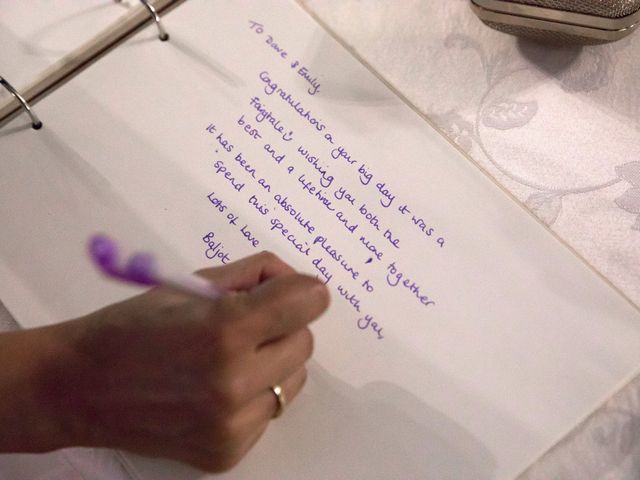 To Dave & Emily,
Congratulations on your big day it was a
Fagtale wishing you both the
best and a lifetime and more together
It has been an absolute pleasure to
spend this special day with you,
Lots of love
Baljot